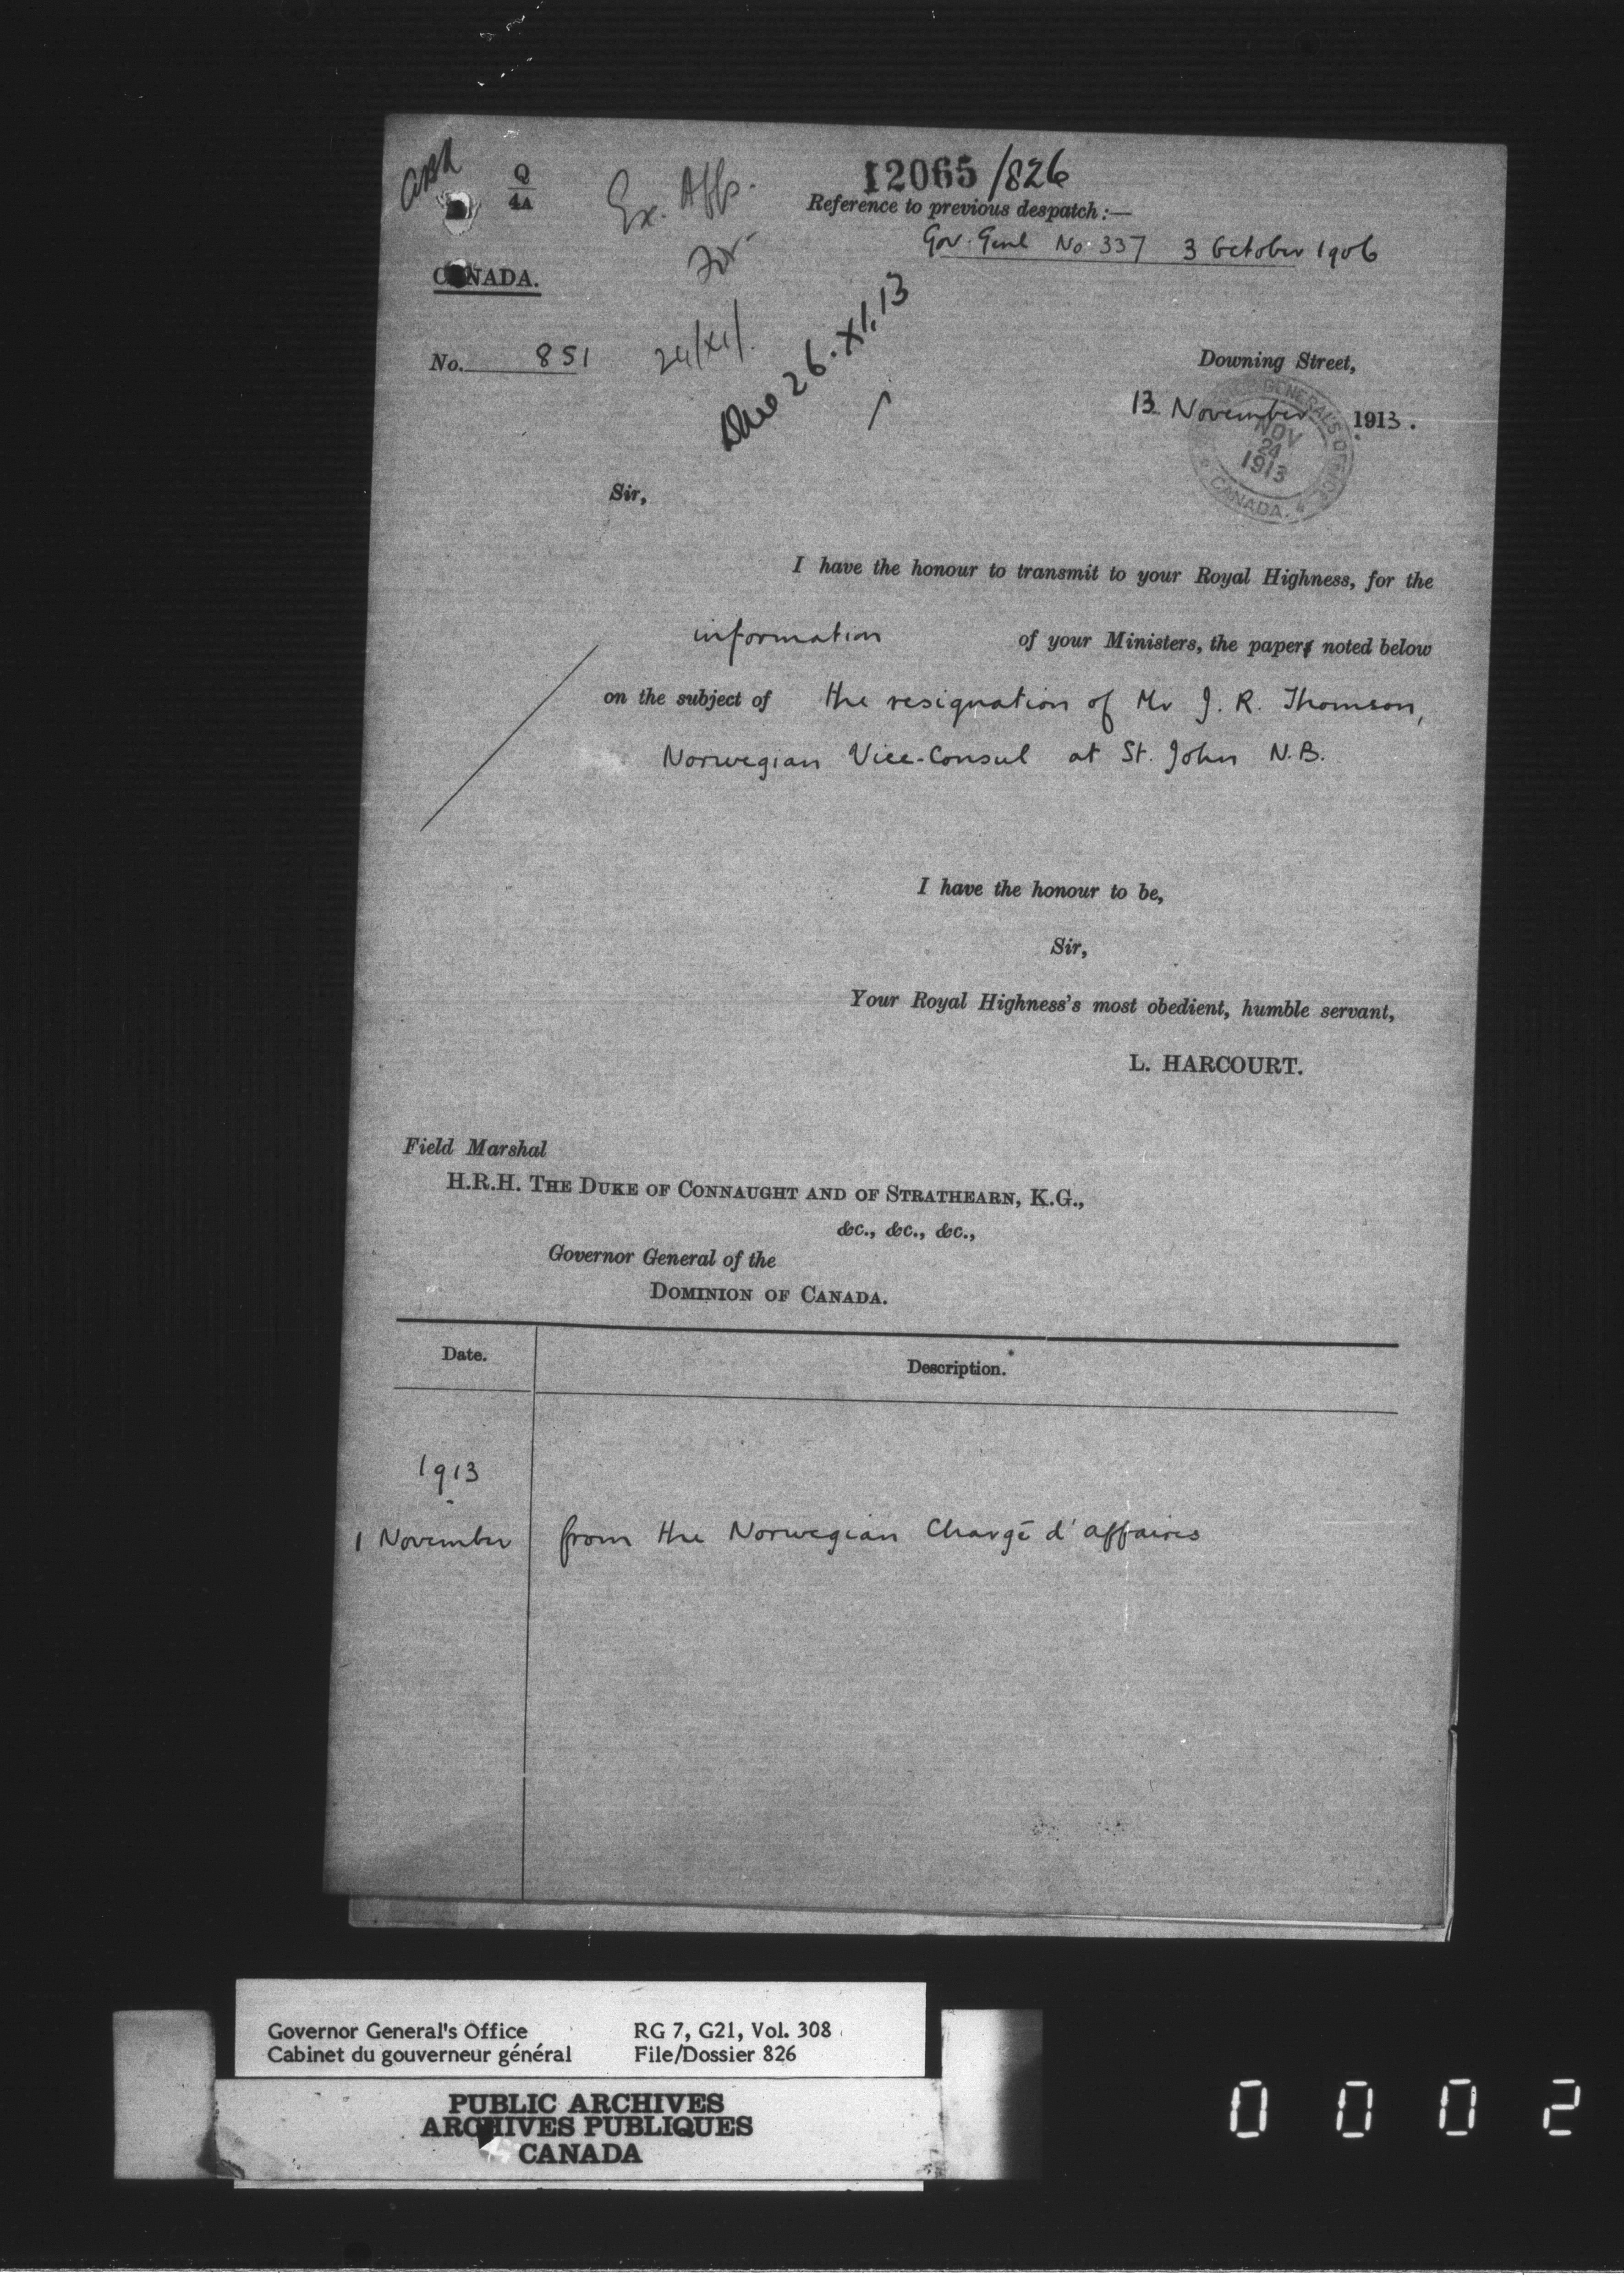 Q
4A
Ex. Affs.
12065/826
Reference to previous despatch :—
Gov. Genl No. 337 3 October 1906
CANADA.
24/XI/.
Due 26.XI.13
No. 851
Downing Street,
13 November 1913.
GOVERNOR GENERAL'S OFFICE
NOV
24
1913
CANADA.
Sir,
I have the honour to transmit to your Royal Highness, for the
information of your Ministers, the paper noted below
on the subject of the resignation of Mr J. R. Thomson,
Norwegian Vice-Consul at St. John N.B.
I have the honour to be,
Sir,
Your Royal Highness's most obedient, humble servant,
L. HARCOURT.
Field Marshal
H.R.H. THE DUKE OF CONNAUGHT AND OF STRATHEARN, K.G.,
&c., &c., &c.,
Governor General of the
DOMINION OF CANADA.
Date. Description.
1913
1 November from the Norwegian Chargé d'affaires
Governor General's Office RG 7, G21, Vol. 308
Cabinet du gouverneur général File/Dossier 826
PUBLIC ARCHIVES
ARCHIVES PUBLIQUES
CANADA
0002